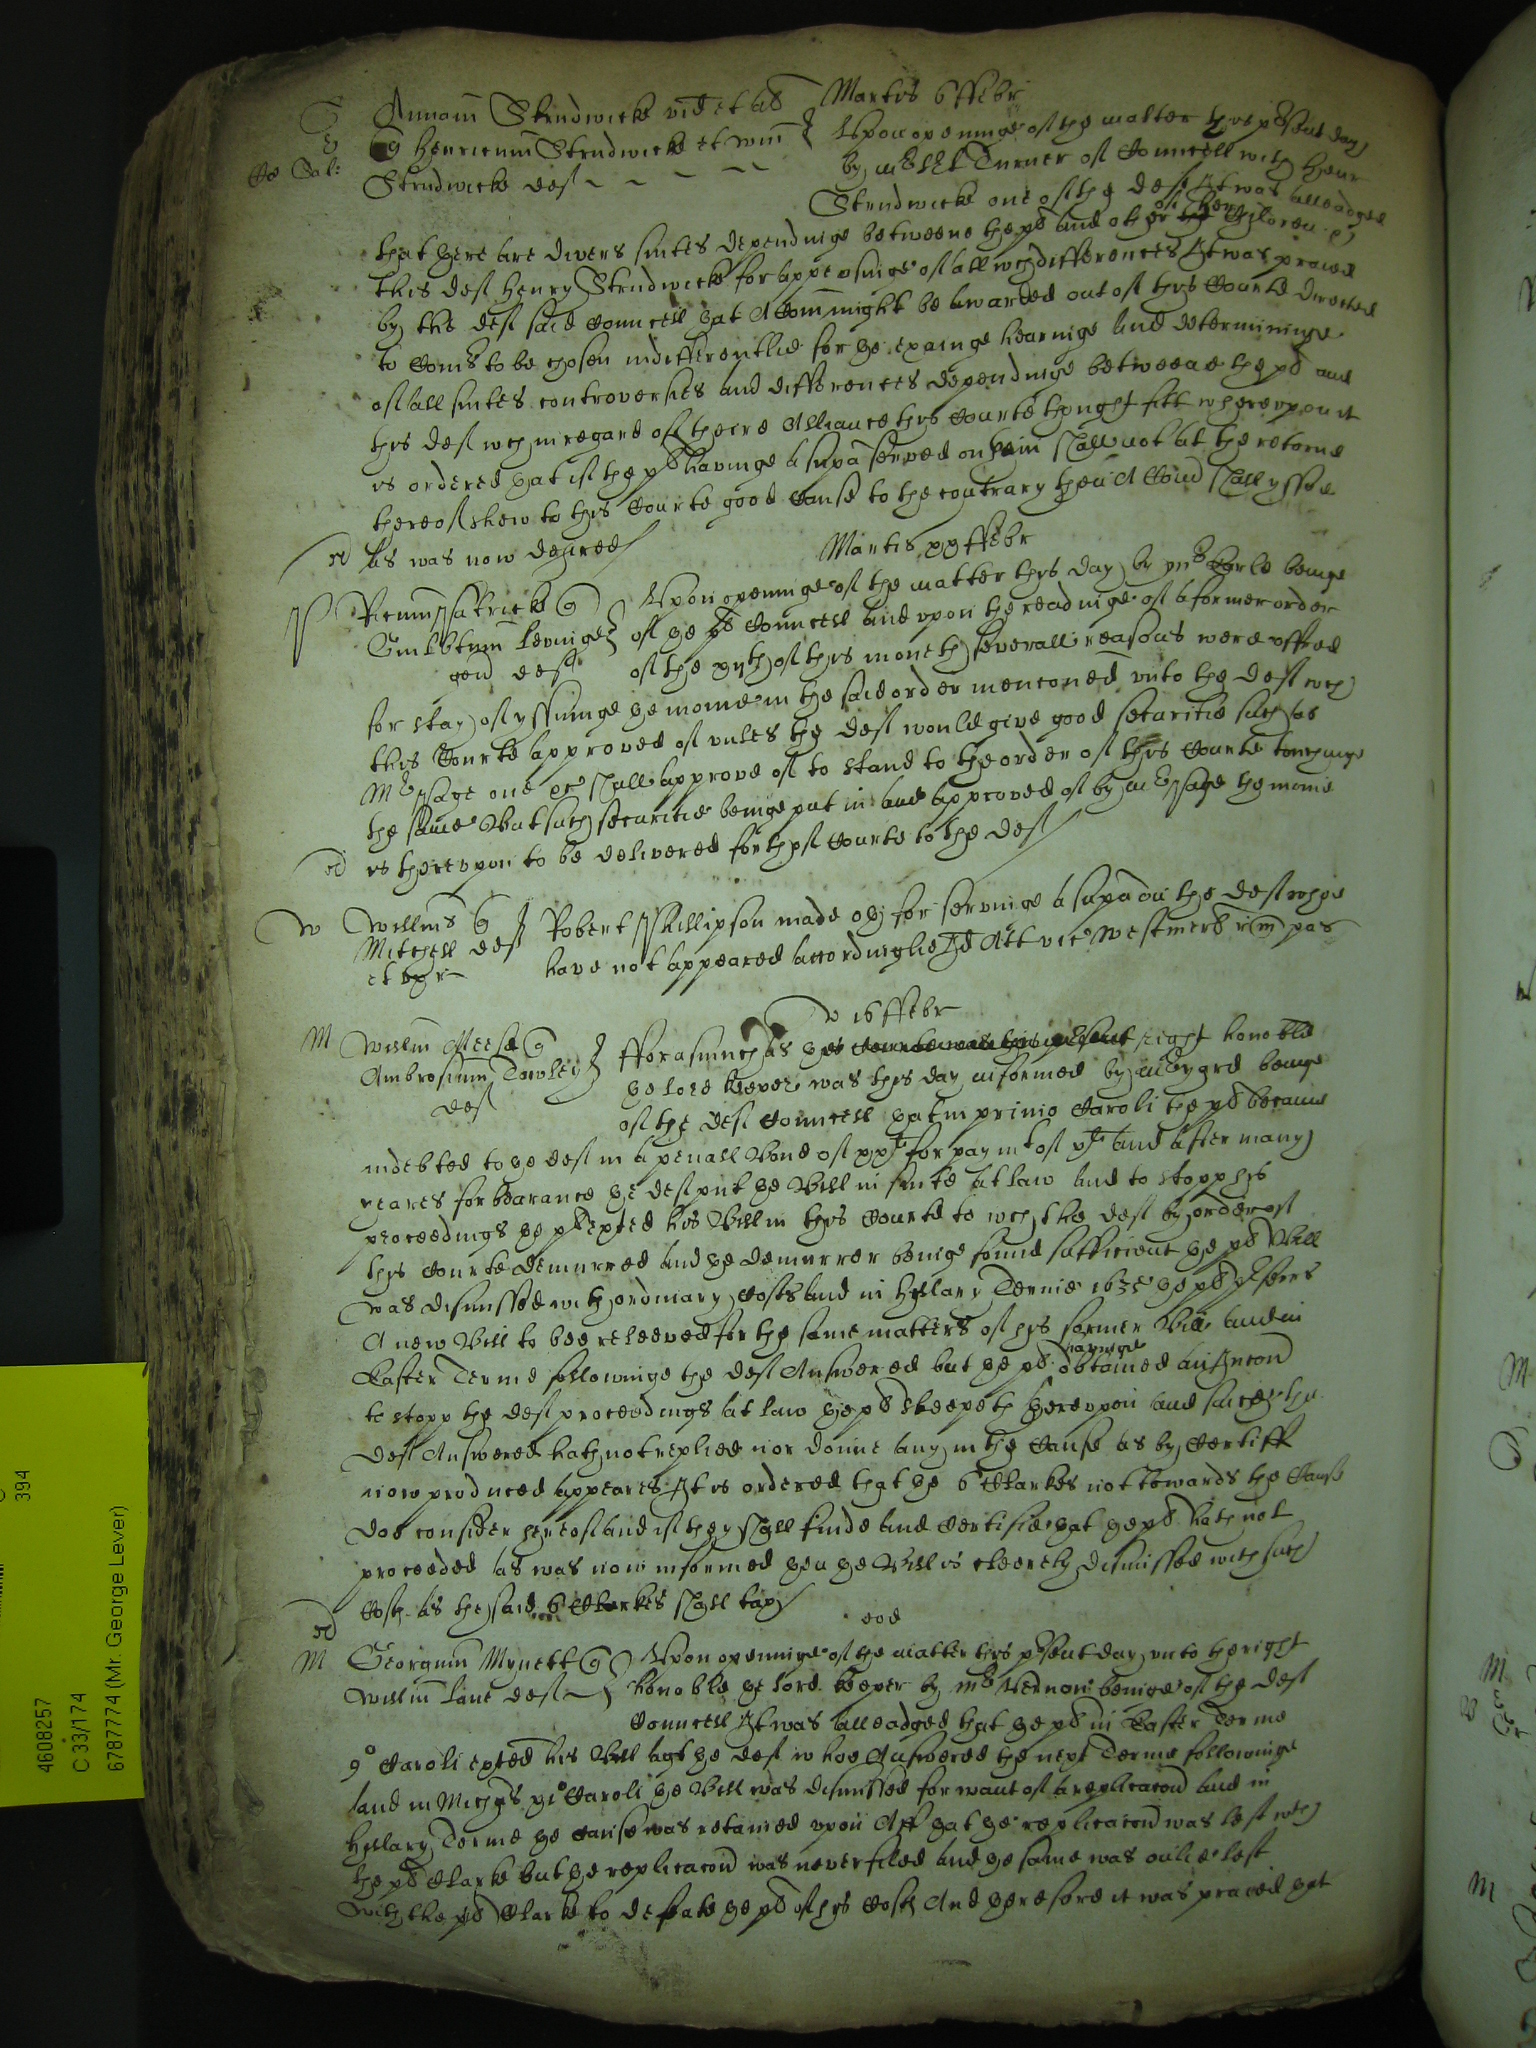 Martis 6 ffebr
Annam Strudwicke vid et al
Henricum Strudwicke et Willm
Strudwicke def
Vpon openinge of the matter this present day
by Mr Turner of Councell with Henr
Strudwicke one of the def It was alleadged
that there are divers suites dependinge betweene the pl and other of her Children &
this def Henry Strudwicke for appeasinge of all wch differences It was praied
by the def said Councell that A Com might be awarded out of this Courte directed
to Coms to be chosen indifferentlie for the exainge hearinge and determininge
of all suites controversies and differences dependinge betweene the pl and
this def wch in regard of theire Alliance this Courte thought fitt wherevpon it
is ordered that if the pl havinge a supa served on him shall not at the retorne
thereof shew to this Courte good Cause to the contrary then A Com shall yssue
rd as was now desired
Martis ffebr
Vpon openinge of the matter this day by Mr Earle beinge
of the pl Councell and vpon the readinge of a former order
gen def
of the xijth of this moneth severall reasons were offred
for stay of yssuinge the monie in the said order mencioned vnto the def wch
this Courte approved of vnles the def would give good securitie such as
Mr Page one &c shall approve of to stand to the order of this Courte touchinge
the same But such securitie beinge put in and approved of by Mr Page the monie
rd is therevpon to be delivered forth of Courte to the def
W Willms
Mitchell def
et vxr
Robert Phillipson made oth for servinge a supa on the def whoe
have not appeared accordinglie Id Att vic Westmerl
16 ffebr
M Willm Meese
Ambrosium Towley
def
fforasmuch as the right honoble
the lord keeper was this day informed by beinge
of the def Councell that in primo Caroli the pl became
indebted to the def in a penall Bond of xxli for paymt of xli and after many
yeares forbearance the def put the Bill in suite at law and to stopp his
proceedings the pl exted his Bill in this Courte to wch the def by order of
this Courte demurred and the demurrer beinge found sufficient the pl Bill
was dismissed with ordinary Costs and in Hyllary Terme 1635 the pl pferrs
A new Bill to bee releeved for the same matters of his former Bill and in
Easter Terme followinge the def Answered but the pl havinge obtained an Inion
to stopp the def proceedings at law the pl sleepeth therevpon and since the
def Answered hath not replied nor donne any in the Cause as by Certiff
now produced appeares It is ordered that the 6 Clarkes not towards the Cause
doe consider hereof and if they shall finde and Certifie that the pl hath not
proceeded as was now informed then the Bill is cleerely dismissed with such
Costs as the said 6 Clarkes shall tax
rd
eod
M Georgium Mynett
Willm Lane def
Vpon openinge of the matter this present day vnto the right
honoble the lord keeper by Mr Vernon beinge of the def
Councell It was alleadged that the pl in Easter Terme
9o Caroli exted his Bill agt the def whoe Answered the next Terme followinge
and in Michs Caroli the Bill was dismissed for want of a replicacon and in
Hyllary Terme the cause was retained vpon Aff that the replicacon was left wth
the pl Clarke but the replicacon was never filed and the same was onlie left
with the pl Clarke to defeate the pl of his Costs And therefore it was praied that
4608257
C 33/174
6787774 (Mr. George Lever)
394